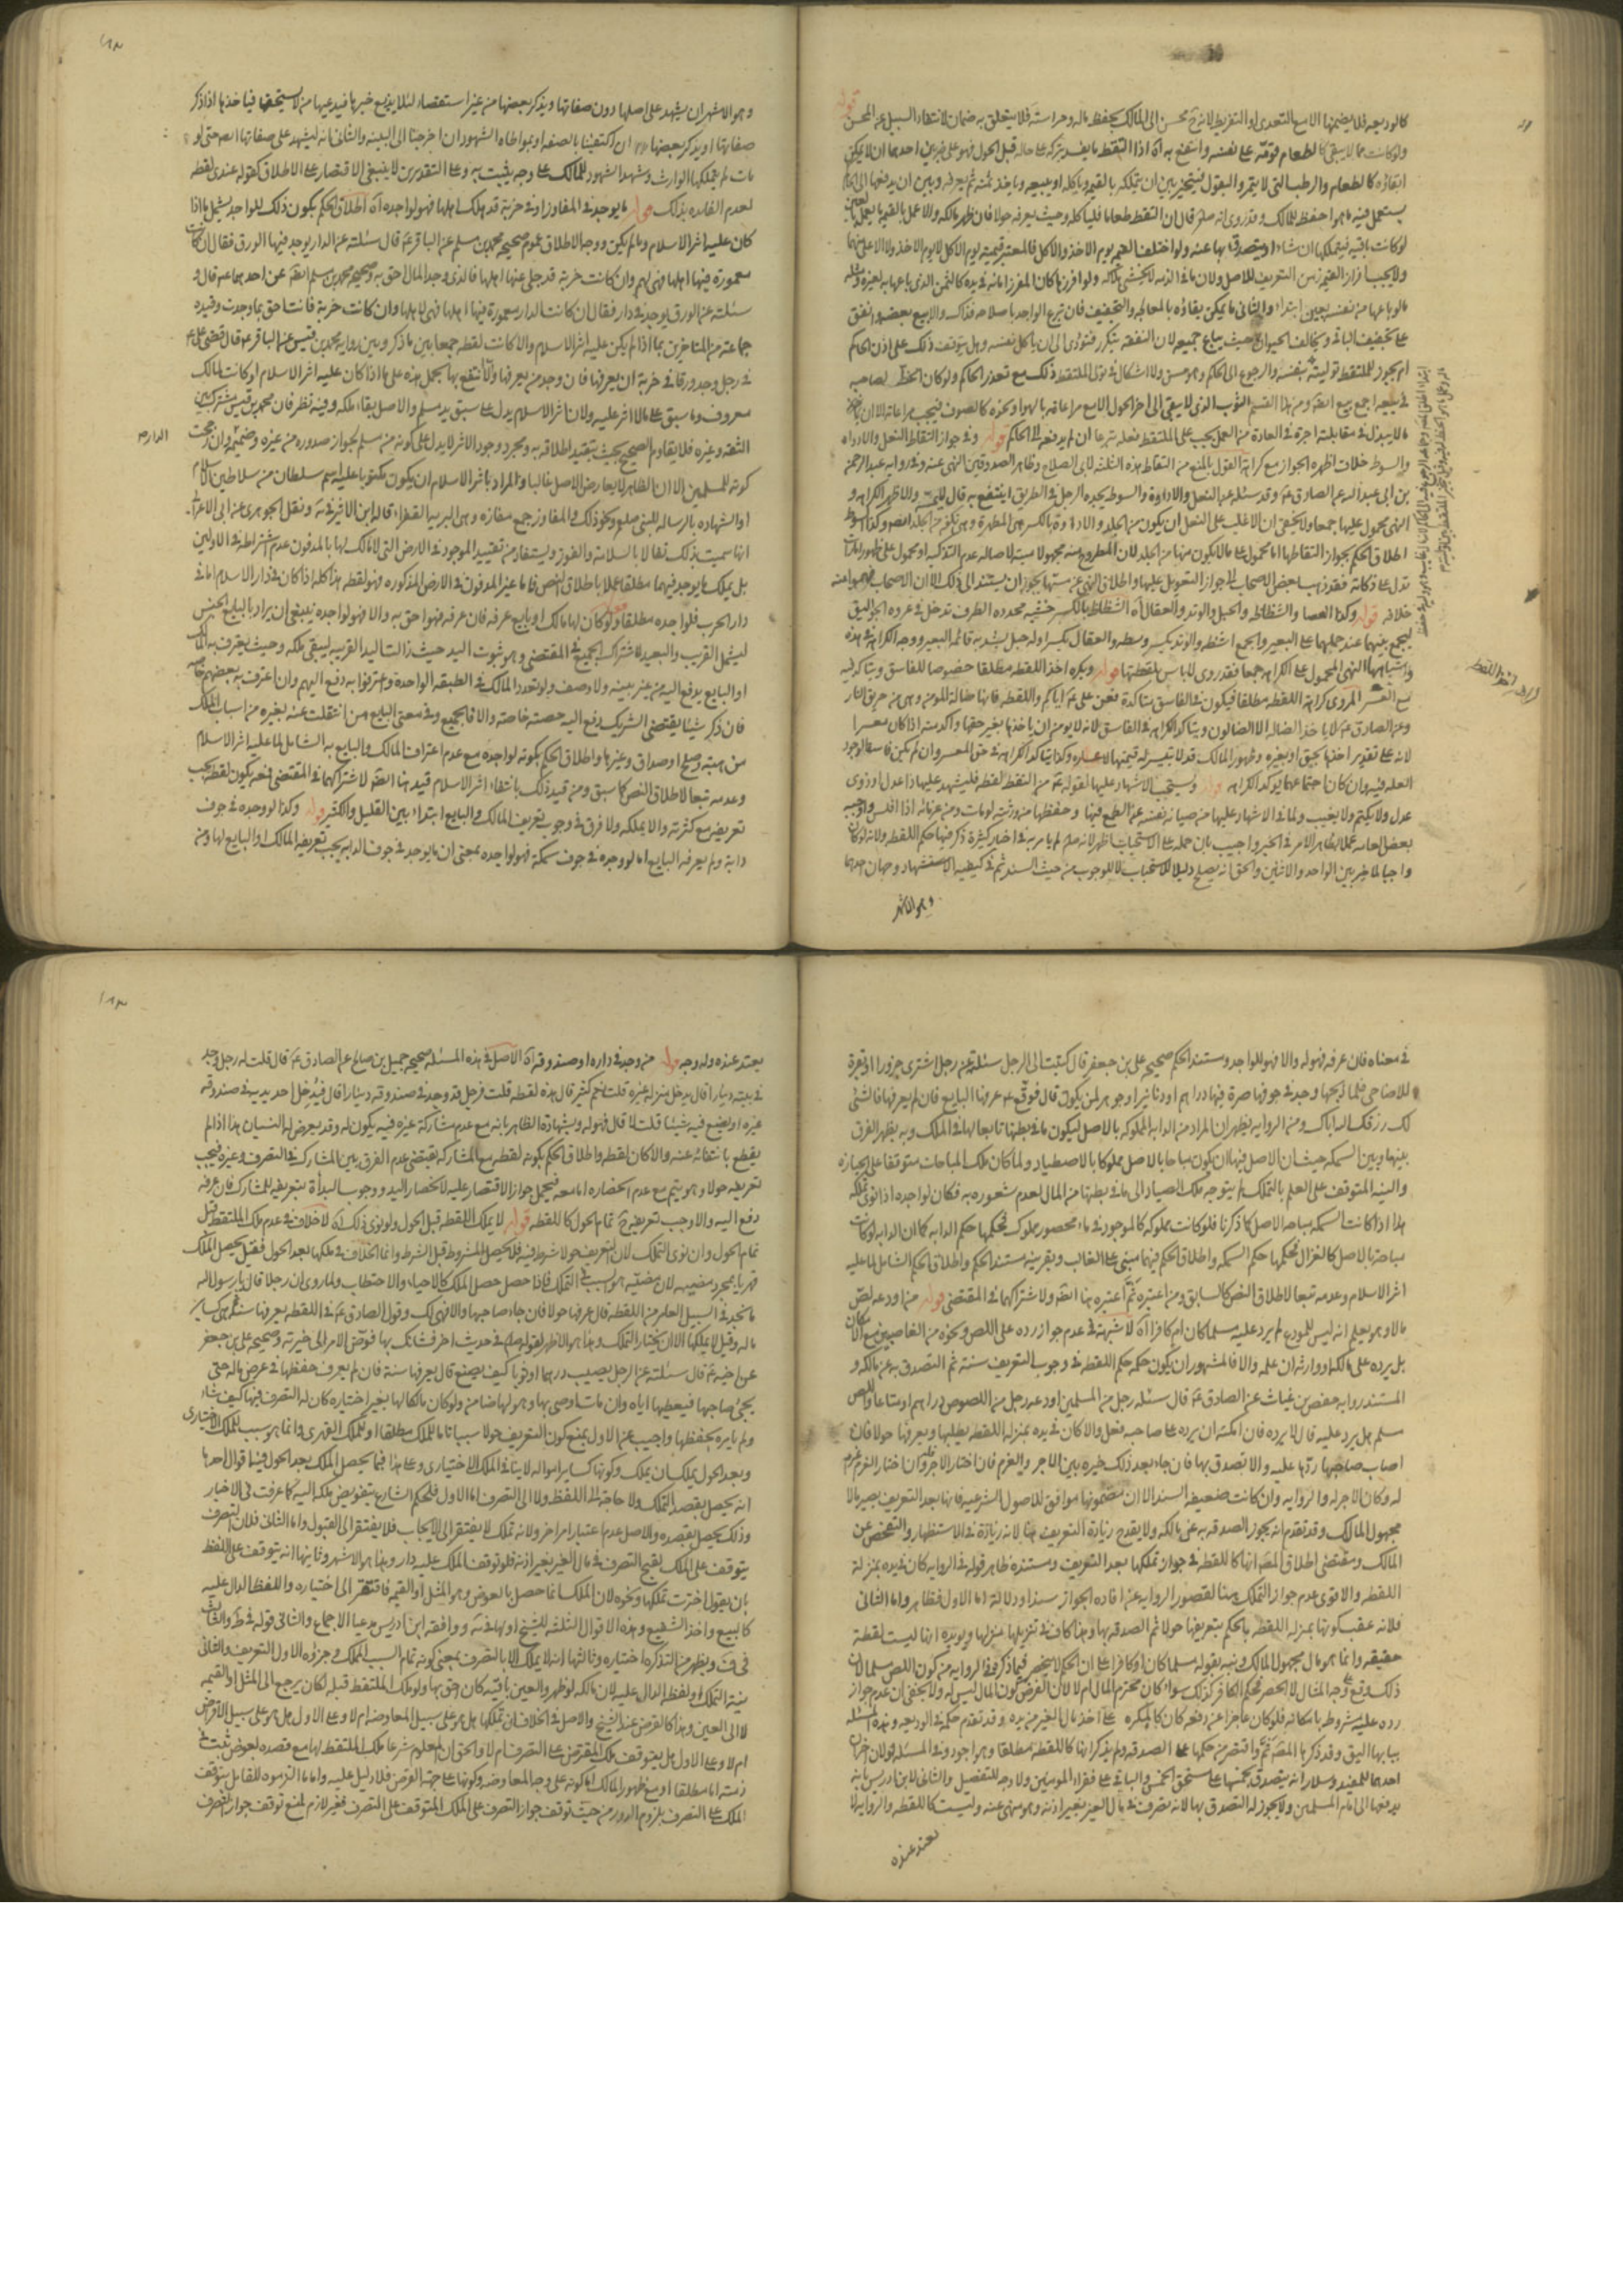 كالوديعه فلا يضمنها الا مع التعدى او التفريط لانه ح محسن الى المالك بحفظ ماله وحراسته فلا يتعلق به ضمان لانتفاء السبيل عن المحسن
ولو كانت مما لا يبقى كالطعام قومه على نفسه وانتفع به اه اذا التقط ما يفسد بتركه على حاله قبل الحول فهو على ضربين احدهما ان لا يمكن
ابقاؤه كالطعام والرطب التى لا يتمر والبقول فيتخير بين ان يتملكه بالقيمه وياكله او يبيعه وياخذ ثمنه ثم يعرفه وبين ان يدفعها الى الحاكم
يستعمل فيه ما هو احفظ للمالك وقد روى انه صلم قال ان التقط طعاما فلياكله وحيث يعرفه حولا فان ظهر مالكه والا عمل بالقيمه ما يعمل بالعين
لو كانت باقيه فيتملكها ان شاء او يتصدق بها عنه ولو اختلف القيمه يوم الاخذ والاكل فالمعتبر قيمته يوم الاكل لا يوم الاخذ ولا الاعلى منهما
ولا يجب افراز القيمه زمن التعريف للاصل ولان ما فى الذمه لا يخشى تلفه ولو افرزها كان المفرز امانه فى يده كالثمن الذى باعها به لغيره ومثله
ما لو باعها من نفسه بعين ابتداء والثانى ما يمكن بقاؤه بالمعالجه والتجفيف فان تبرع الواجد باصلاحه فذاك والا بيع بعضه وانفق
على تجفيف الباقى ويخالف الحيوان حيث يباع جميعه لان النفقه تتكرر فتؤدى الى ان ياكل نفسه وهل يتوقف ذلك على اذن الحاكم
ام يجوز للملتقط توليته بنفسه والرجوع الى الحكم وهو حسن ولا اشكال فى تولى الملتقط ذلك مع تعذر الحاكم ولو كان الحظ لصاحبه
فى بيعه اجمع بيع ايضا ومن هذا القسم الثوب الذى لا يبقى الى اخر الحول الا مع مراعاته بالهواء ونحوه كالصوف فيجب مراعاته الا ان
ما لا يبذل فى مقابلته اجرة فى العادة من العمل يجب على الملتقط فعله تبرعا ان لم يدفعه الى الحاكم قوله وفى جواز التقاط النعل والاداوه
والسوط خلاف اظهره الجواز مع كراهة القول بالمنع من التقاط هذه الثلثه لابى الصلاح وظاهر الصدوقين النهى عنه وفى روايه عبد الرحمن
بن ابى عبد الله عن الصادق ع وقد سئله عن النعل والاداوة والسوط يجده الرجل فى الطريق اينتفع به قال لا يمسه والاظهر الكراهه و
النهى محمول عليها
خلافه قوله وكذا العصا والشظاظ والحبل والوتد والعقال اه الشظاظ بالكسر خشبه محدده الطرف تدخل فى عروه الجوالق
ليجمع بينهما عند حملهما على البعير والجمع اشظه والوتد بكسر وسطه والعقال بكسر اوله حبل يشد به قائمه البعير ووجه الكراهه فى هذه
واشباهها النهى المحمول على الكراهه جمعا فقد روى لا باس بلقطتها قوله ويكره اخذ اللقطه مطلقا خصوصا للفاسق ويتاكد فيه
مع العسر المروى كراهة اللقطه مطلقا فيكون فى الفاسق متاكدة فعن على ع اياكم واللقطه فانها ضالة المومن وهى من حريق النار
وعن الصادق ع لا ياخذ الضاله الا الضالون ويتاكد الكراهه فى الفاسق لانه لا يومن ان ياخذها بغير حقها واكد منه اذا كان معسرا
لانه على تقدير اخذها بحق او بغيره وظهور المالك قد لا يتيسر له قيمتها لاعساره وكذا يتاكد الكراهه فى حق المعسر وان لم يكن فاسقا لوجود
العله فيه وان كان اجتماعهما يوكد الكراهه قوله ويستحب الاشهاد عليها لقوله ع من التقط لقطه فليشهد عليها ذا عدل او ذوى
عدل ولا يكتم ولا يغيب ولما فى الاشهاد عليها من صيانه نفسه عن الطمع فيها وحفظها من ورثته لو مات ومن غرمائه اذا افلس واوجبه
بعض العامه عملا بظاهر الامر فى الخبر واجيب بان حمله على الاستحباب اظهر لانه صلم لم يامر به فى اخبار كثيرة ذكر فيها حكم اللقطه ولانه لو كان
واجبا لما خير بين الواحد والاثنين والحق انه يصلح دليلا للاستحباب لا للوجوب من حيث السند ثم فى كيفيه الاستشهاد وجهان احدهما
وهو الاشهر
وهو الاشهر ان يشهد على اصلها دون صفاتها او يذكر بعضها من غير استقصاء لئلا يذيع خبرها فيدعيها من لا يستحقها فياخذها اذا ذكر
صفاتها او يذكر بعضها ان اكتفينا بالصفه او بمواطاه الشهود ان احوجنا الى البينه والثانى انه ليشهد على صفاتها ايضا حتى لو
مات لم يتملكها الوارث وشهد الشهود للمالك على وجه يثبت به وعلى التقديرين لا ينبغى الاقتصار على الاطلاق كقوله عندى لقطه
لعدم الفائده بذلك قوله ما يوجد فى المفاوز او فى خربة قد هلك اهلها فهو لواجده اه اطلاق الحكم بكون ذلك للواجد يشمل ما اذا
كان عليه اثر الاسلام وما لم يكن ووجه الاطلاق عموم صحيحه محمد بن مسلم عن الباقر ع قال سئلته عن الدار يوجد فيها الورق فقال ان كانت
معمورة فيها اهلها فهى لهم وان كانت خربة قد جلى عنها اهلها فالذى وجد المال احق به وصحيحه محمد بن مسلم ايضا عن احدهما ع قال و
سئلته عن الورق يوجد فى دار فقال ان كانت الدار معمورة فيها اهلها فهى لاهلها وان كانت خربة فانت احق بما وجدت وقيده
جماعة من المتاخرين بما اذا لم يكن عليه اثر الاسلام والا كانت لقطه جمعا بين ما ذكر وبين روايه محمد بن قيس عن الباقر ع قال قضى على ع
فى رجل وجد ورقا فى خربة ان يعرفها فان وجد من يعرفها والا تمتع بها بحمل هذه على ما اذا كان عليه اثر الاسلام او كانت لمالك
معروف وما سبق على ما لا اثر عليه ولان اثر الاسلام يدل على سبق يد مسلم والاصل بقاء ملكه وفيه نظر فان محمد بن قيس مشترك بين
الثقه وغيره فلا يقاوم الصحيح بحيث يتقيد اطلاقه به ومجرد وجود الاثر لا يدل على كونه من مسلم لجواز صدوره من غيره
كونه للمسلمين الا ان الظاهر لا يعارض الاصل غالبا والمراد باثر الاسلام ان يكون مكتوبا عليه اسم سلطان من سلاطين الاسلام
او الشهاده بالرساله للنبى صلم ونحو ذلك والمفاوز جمع مفازه وهى البريه القفراء قاله ابن الاثير فى ونقل الجوهرى عن ابن الاعرابى
انها سميت بذلك تفالا بالسلامة والفوز ويستفاد من تقييد الموجود فى الارض التى لا مالك لها بالمدفون عدم اشتراطه فى الاولين
بل يملك ما يوجد فيهما مطلقا عملا باطلاق النص فاما غير المدفون فى الارض المذكوره فهو لقطه هذا كله اذا كان فى دار الاسلام اما فى
دار الحرب فلواجده مطلقا قوله ولو كان لها مالك او بايع عرفه فان عرفه فهو احق به والا فهو لواجده ينبغى ان يراد بالبايع الجنس
ليشمل القريب والبعيد لاشتراك الجميع فى المقتضى وهو ثبوت اليد حيث زالت اليد القريبه ليبقى ملكه وحيث يعترف به المالك
او البايع يدفع اليه من غير بينه ولا وصف ولو تعدد المالك فى الطبقه الواحدة واعترفوا به دفع اليهم وان اعترف به بعضهم خاصه
فان ذكر شيئا يقتضى الشريك دفع اليه حصته خاصه والا فالجميع وفى معنى البايع من انتقلت عنه بغيره من اسباب الملك
من هبه وصلح او صداق وغيرها واطلاق الحكم بكونه لواجده مع عدم اعتراف المالك والبايع به الشامل لما عليه اثر الاسلام
وعدمه تبعا لاطلاق النص كما سبق ومن قيد ذلك بانتفاء اثر الاسلام قيد هنا ايضا لاشتراكهما فى المقتضى فمعه يكون لقطه يجب
تعريفه مع كثرته والا يملكه ولا فرق فى وجوب تعريف المالك والبايع ابتداء بين القليل والكثير قوله وكذا لو وجده فى جوف
دابة ولم يعرفه البايع اما لو وجده فى جوف سمكة فهو لواجده بمعنى ان ما يوجد فى جوف الدابه يجب تعريفه المالك والبايع لها ومن
فى معناه فان عرفه فهو له والا فهو للواجد ومستند الحكم صحيحه على بن جعفر قال كتبت الى الرجل سئلته عن رجل اشترى جزورا او بقرة
للاضاحى فلما ذبحها وجد فى جوفها صرة فيها دراهم او دنانير او جوهر لمن يكون قال فوقع ع عرفها البايع فان لم يعرفها فالشئ
لك رزقك الله اياك ومن الروايه يظهر ان المراد من الدابه المملوكه بالاصل ليكون ما فى بطنها تابعا لها فى الملك وبه يظهر الفرق
بينها وبين السمكه حيث ان الاصل فيها ان يكون مباحا بالاصل مملوكا بالاصطياد ولما كان ملك المباحات متوقفا على الحيازه
والنيه المتوقف على العلم بالتملك لم يتوجه ملك الصياد الى ما فى بطنها من المال لعدم شعوره به فكان لواجده اذا نوى تملكه
هذا اذا كانت السمكه مباحه الاصل كما ذكرنا فلو كانت مملوكه كالموجود فى ماء محصور مملوك فحكمها حكم الدابه كما ان الدابه لو كانت
مباحة بالاصل كالغزال فحكمها حكم السمكه واطلاق الحكم فيهما مبنى على الغالب وبقرينه مستند الحكم واطلاق الحكم الشامل لما عليه
اثر الاسلام وعدمه تبعا لاطلاق النص كالسابق ومن اعتبره ثم اعتبره هنا ايضا ولاشتراكهما فى المقتضى قوله من اودعه لص
مالا وهو يعلم انه ليس للمودع لم يرد عليه مسلما كان ام كافرا اه لا شبهة فى عدم جواز رده على اللص ونحوه من الغاصبين مع الامكان
بل يرده على مالكه او وارثه ان علمه والا فالمشهور ان يكون حكمه حكم اللقطه فى وجوب التعريف سنة ثم التصدق به عن مالكه و
المستند روايه حفص بن غياث عن الصادق ع قال سئله رجل من المسلمين اودعه رجل من اللصوص دراهم او متاعا واللص
مسلم هل يرد عليه قال لا يرده فان امكنه ان يرده على صاحبه فعل والا كان فى يده بمنزله اللقطه يطلبها ويعرفها حولا فان
اصاب صاحبها ردها عليه والا تصدق بها فان جاء بعد ذلك خيره بين الاجر والغرم فان اختار الاجر فله وان اختار الغرم غرم
له وكان الاجر له والروايه وان كانت ضعيفه السند الا ان مضمونها موافق للاصول الشرعيه فانها بعد التعريف يصير مالا
مجهول المالك وقد تقدم انه يجوز الصدقه به عن مالكه ولا يقدح زيادة التعريف هنا لانه زيادة فى الاستظهار والتفحص عن
المالك ومقتضى اطلاق المصنف انها كاللقطه فى جواز تملكها بعد التعريف ومستنده ظاهر قوله فى الروايه كان فى يده بمنزله
اللقطه والاقوى عدم جواز التملك هنا لقصور الروايه عن افاده الجواز سندا ودلالة اما الاول فظاهر واما الثانى
فلانه عقب كونها بمنزله اللقطه بالحكم بتعريفها حولا ثم الصدقه بها وهذا كاف فى تنزيلها منزلها ويؤيده انها ليست لقطة
حقيقه وانما هو مال مجهول المالك ونبه بقوله مسلما كان او كافرا على ان الحكم لا ينحصر فيما ذكر فى الروايه من كون اللص مسلما لان
ذلك وقع على وجه المثال لا الحصر فحكم الكافر كذلك سواء كان محترم المال ام لا لان الفرض كون المال ليس له ولا يخفى ان عدم جواز
رده عليه مشروط بامكانه فلو كان عاجزا عن دفعه كان كالمكره على اخذ مال الغير من يده وقد تقدم حكمه فى الوديعه وهذه المسئله
ببابها اليق وقد ذكرها المصنف ثم واقتصر من حكمها على الصدقه ولم يذكر انها كاللقطه مطلقا وهو اجود وفى المسئله قولان اخران
احدهما للمفيد وسلار انه يتصدق بخمسها على مستحق الخمس والباقى على فقراء المومنين ولا وجه للتفصيل والثانى لابن ادريس بانه
يدفعها الى امام المسلمين ولا يجوز له التصدق بها لانه تصرف فى مال الغير بغير اذنه وهو منهى عنه وليست كاللقطه والروايه لا
يعتد عنده
يعتد عنده وله وجه قوله من وجد فى داره او صندوقه اه الاصل فى هذه المسئله صحيحه جميل بن صالح عن الصادق ع قال قلت له رجل وجد
فى بيته دينارا قال يدخل منزله غيره قلت نعم كثير قال هذه لقطه قلت فرجل قد وجد فى صندوقه دينارا قال فيدخل احد يده فى صندوقه
غيره او يضع فيه شيئا قلت لا قال فهو له وبشهادة الظاهر بانه مع عدم مشاركة غيره فيه يكون له وقد يعرض له النسيان هذا اذا لم
يقطع بانتفائه عنه والا كان لقطه واطلاق الحكم بكونه لقطه مع المشاركه يقتضى عدم الفرق بين المشارك فى التصرف وغيره فيجب
تعريفه حولا وهو يتم مع عدم انحصاره اما معه فيحتمل جواز الاقتصار عليه لانحصار اليد ووجوب البداة بتعريفه للمشارك فان عرفه
دفع اليه والا وجب تعريفه تمام الحول كاللقطه قوله لا يملك اللقطه قبل الحول ولو نوى ذلك اه لا خلاف فى عدم ملك الملتقط قبل
تمام الحول وان نوى التملك لان التعريف حولا شرط فيه فلا يحصل المشروط قبل الشرط وانما الخلاف فى ملكها بعد الحول فقيل يحصل الملك
قهريا بمجرد مضيه لان مضيه هو السبب فى التملك فاذا حصل حصل الملك كالاحياء والاحتطاب ولما روى ان رجلا قال يا رسول الله
ما نجد فى السبيل العامر من اللقطه قال عرفها حولا فان جاء صاحبها والا فهى لك وقول الصادق ع فى اللقطه يعرفها سنة ثم هى كساير
ماله وقيل لا يملكها الا ان يختار التملك وهذا هو الاظهر لقوله صلم فى حديث اخر فشانك بها فوض الامر الى خيرته وصحيحه على بن جعفر
عن اخيه ع قال سئلته عن الرجل يصيب درهما او ثوبا كيف يصنع قال يعرفها سنة فان لم يعرف حفظها فى عرض ماله حتى
يجئ صاحبها فيعطيها اياه وان مات اوصى بها وهو لها ضامن ولو كان مالكا لها بغير اختياره كان له التصرف فيها كيف شاء
ولم يامره بحفظها واجيب عن الاول بمنع كون التعريف حولا سببا تاما للملك مطلقا او للملك القهرى وانما هو سبب للملك الاختيارى
وبعد الحول يملك ان يملك وكونها كسائر امواله لا ينافى الملك الاختيارى وعلى هذا فبما يحصل الملك بعد الحول فيه اقوال احدها
انه يحصل بقصد التملك ولا حاجة الى اللفظ ولا الى التصرف اما الاول فلحكم الشارع بتفويض ملكه اليه كما عرفت فى الاخبار
وذلك يحصل بقصده والاصل عدم اعتبار امر اخر ولانه تملك لا يفتقر الى الايجاب فلا يفتقر الى القبول واما الثانى فلان التصرف
يتوقف على الملك لقبح التصرف فى مال الغير بغير اذنه فلو توقف الملك عليه دار وهذا هو الاشهر وثانيها انه يتوقف على اللفظ
بان يقول اخترت تملكها ونحوه لان الملك انما حصل بالعوض وهو المثل او القيمه فافتقر الى اختياره واللفظ الدال عليه
كالبيع واخذ الشفيع وهذه الاقوال الثلثه للشيخ اولها فى يه ووافقه ابن ادريس مدعيا الاجماع والثانى قوله فى ط والثالث
فى ف ويظهر من التذكره اختياره وثالثها انه لا يملك الا بالتصرف بمعنى كونه تمام السبب المملك وجزؤه الاول التعريف والثانى
نية التملك او لفظه الدال عليه لان مالكه لو ظهر والعين باقيه كان احق بها ولو ملك الملتقط قبله لكان يرجع الى المثل او القيمه
لا الى العين وهذا كالقرض عند الشيخ والاصل فى الخلاف ان تملكها هل هو على سبيل المعاوضه ام لا وعلى الاول هل هو على سبيل الاقتراض
ام لا وعلى الاول هل يتوقف ملك المقترض على التصرف ام لا والحق ان المعلوم شرعا ملك الملتقط لها مع قصده لعوض ثبت فى
ذمته اما مطلقا او مع ظهور المالك اما كونه على وجه المعاوضه وكونها على جهة القرض فلا دليل عليه واما ما التزموه للقايل بتوقف
الملك على التصرف بلزوم الدور من حيث توقف جواز التصرف على الملك المتوقف على التصرف فغير لازم لمنع توقف جواز التصرف